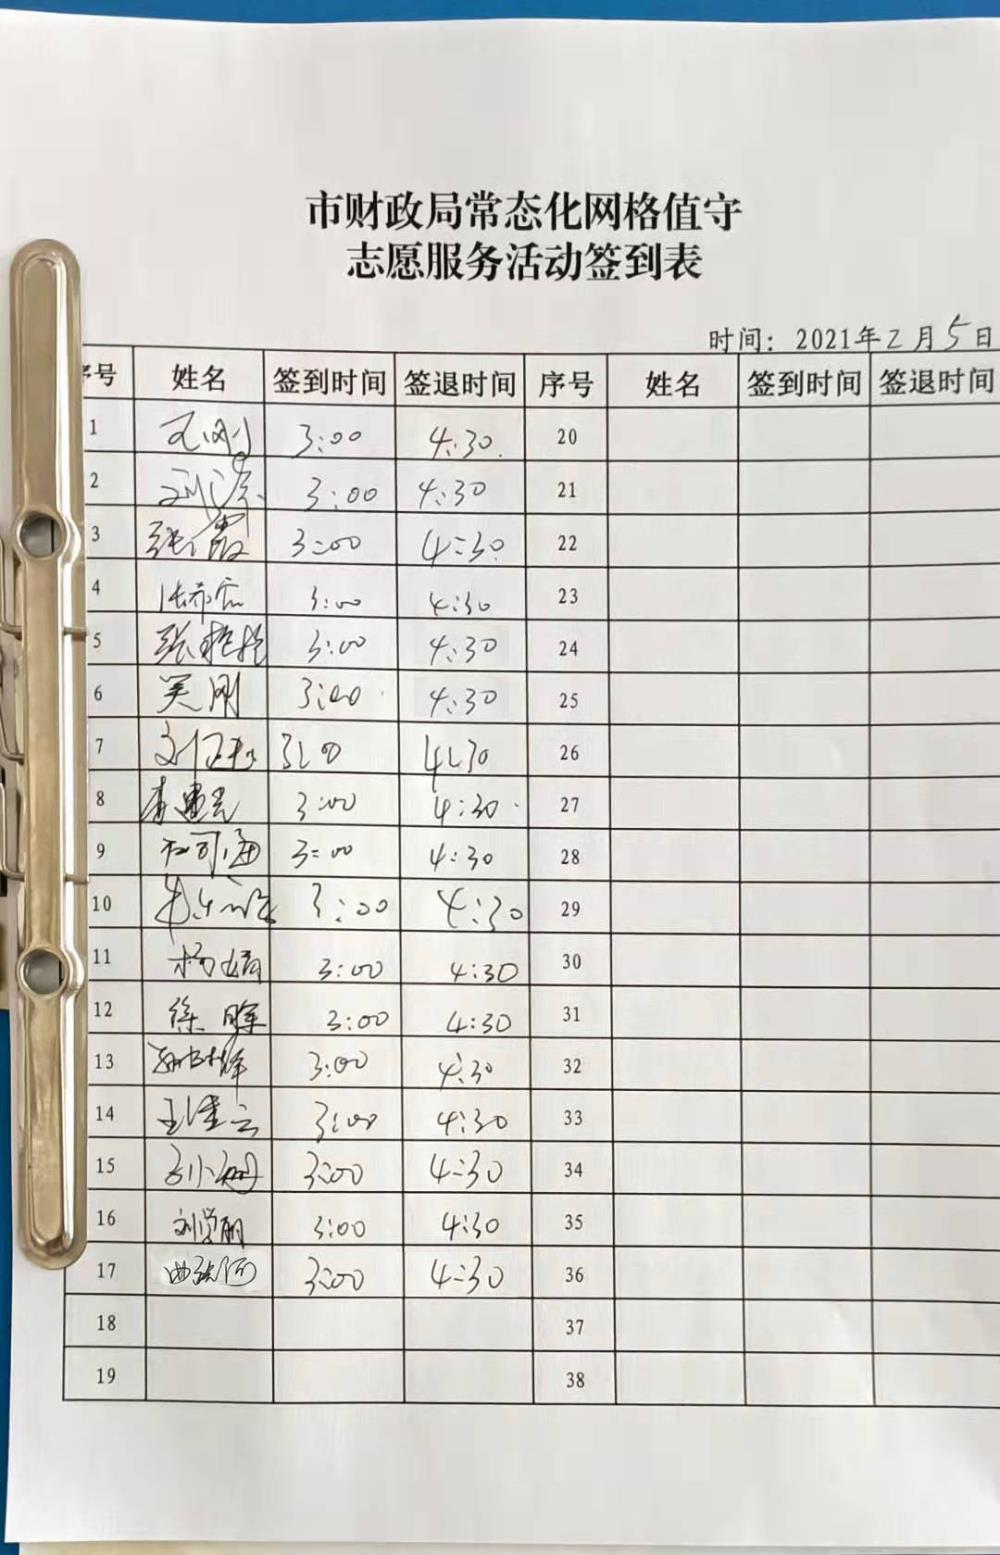 市财政局常态化网格值守
志愿服务活动签到表
时间：2021年2月5日
序号 姓名 签到时间 签退时间 序号 姓名 签到时间 签退时间
1 3:00 4:30 20
2 3:00 4:30 21
3 张霞 3:00 4:30 22
4 3:00 4:30 23
5 3:00 4:30 24
6 吴刚 3:00 4:30 25
7 3:00 4:30 26
8 3:00 4:30 27
9 3:00 4:30 28
10 3:00 4:30 29
11 杨娟 3:00 4:30 30
12 徐晖 3:00 4:30 31
13 3:00 4:30 32
14 3:00 4:30 33
15 3:00 4:30 34
16 刘学丽 3:00 4:30 35
17 3:00 4:30 36
18 37
19 38